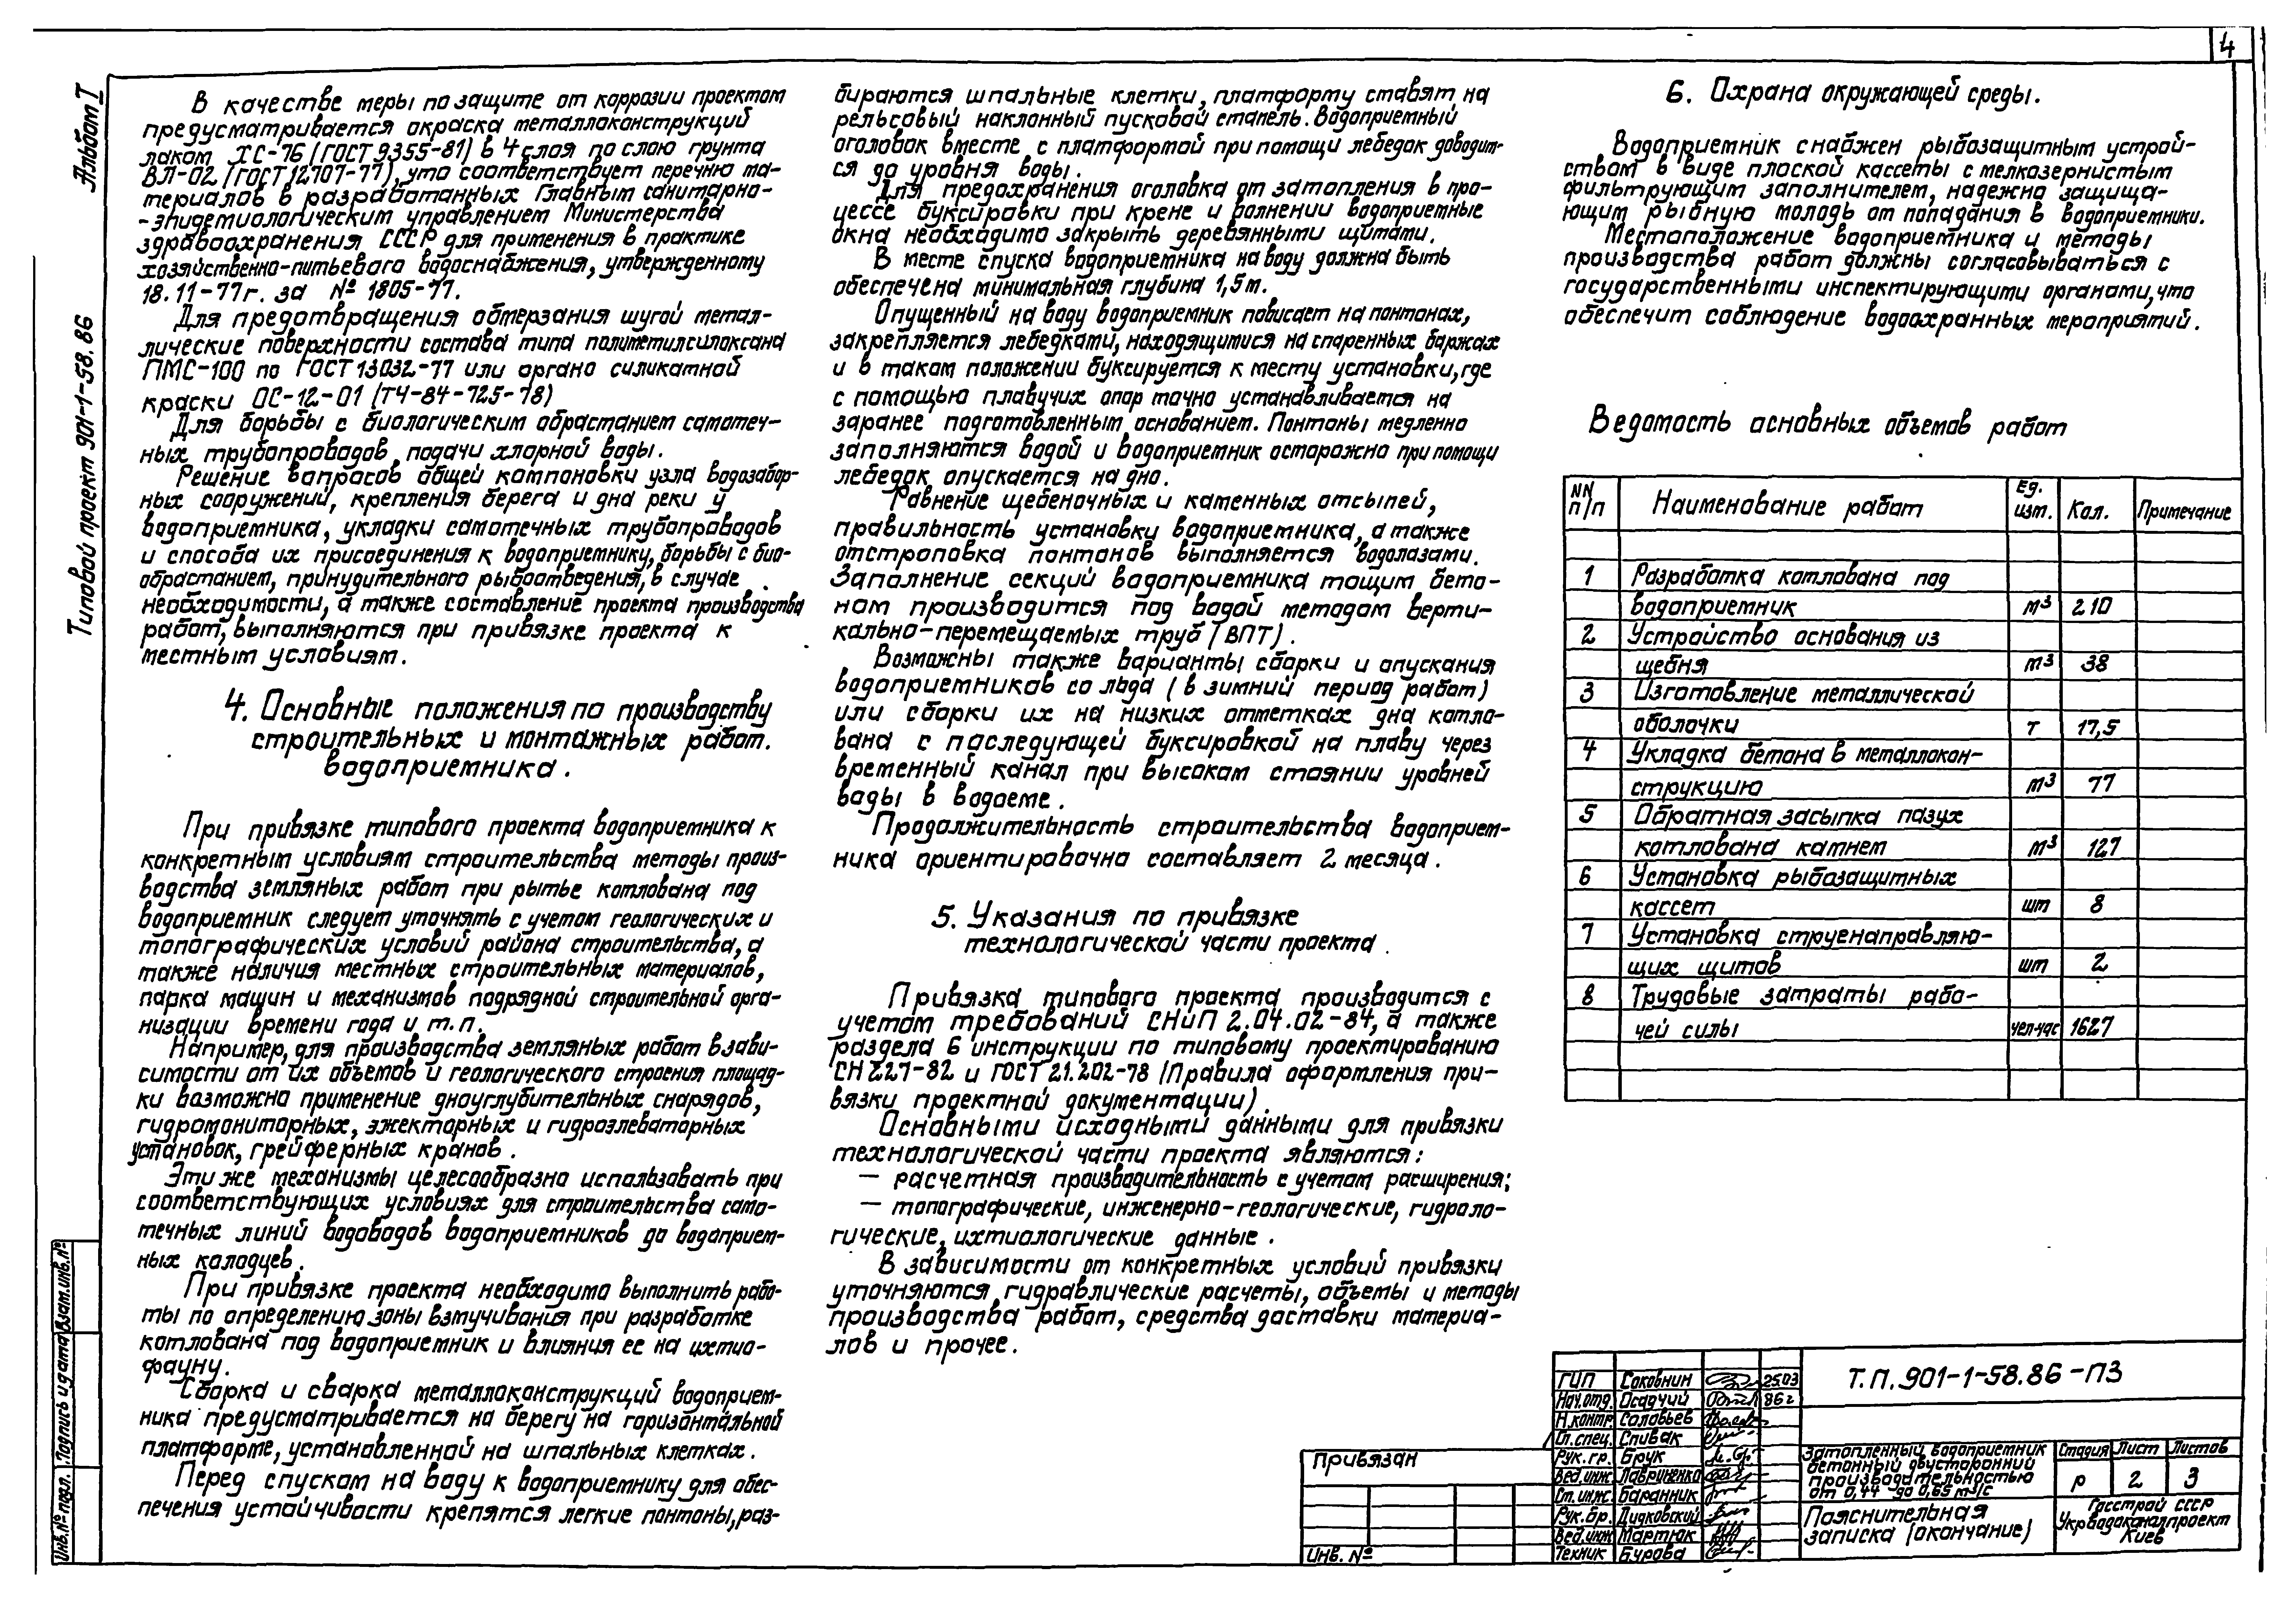 4
Альбом I
Типовой проект 901-1-58.86
В качестве меры по защите от коррозии проектом
предусматривается окраска металлоконструкций
лаком ХС-76 (ГОСТ 9355-81) в 4 слоя по слою грунта
ВЛ-02 (ГОСТ 12707-77), что соответствует перечню ма-
териалов в разработанных Главным санитарно-
-эпидемиологическим управлением Министерства
здравоохранения СССР для применения в практике
хозяйственно-питьевого водоснабжения, утвержденному
18.11-77г. за № 1805-77.
Для предотвращения обмерзания шугой метал-
лические поверхности состава типа полиметилсилоксана
ПМС-100 по ГОСТ 13032-77 или органо силикатной
краски ОС-12-01 (ТЧ-84-725-78)
Для борьбы с биологическим обрастанием самотеч-
ных трубопроводов подачи хлорной воды.
Решение вопросов общей компоновки узла водозабор-
ных сооружений, крепления берега и дна реки у
водоприемника, укладки самотечных трубопроводов
и способа их присоединения к водоприемнику, борьбы с био-
обрастанием, принудительного рыбоотведения, в случае
необходимости, а также составление проекта производства
работ, выполняются при привязке проекта к
местным условиям.
4. Основные положения по производству
строительных и монтажных работ.
водоприемника.
При привязке типового проекта водоприемника к
конкретным условиям строительства методы произ-
водства земляных работ при рытье котлована под
водоприемник следует уточнять с учетом геологических и
топографических условий района строительства, а
также наличия местных строительных материалов,
парка машин и механизмов подрядной строительной орга-
низации времени года и т.п.
Например, для производства земляных работ в зави-
симости от их объемов и геологического строения площад-
ки возможно применение дноуглубительных снарядов,
гидромониторных, эжекторных и гидроэлеваторных
установок, грейферных кранов.
Эти же механизмы целесообразно использовать при
соответствующих условиях для строительства само-
течных линий водоводов водоприемников до водоприем-
ных колодцев.
При привязке проекта необходимо выполнить рабо-
ты по определению зоны взмучивания при разработке
котлована под водоприемник и влияния ее на ихтио-
фауну.
Сборка и сварка металлоконструкций водоприем-
ника предусматривается на берегу на горизонтальной
платформе, установленной на шпальных клетках.
Перед спуском на воду к водоприемнику для обес-
печения устойчивости крепятся легкие понтоны, раз-
бираются шпальные клетки, платформу ставят на
рельсовый наклонный пусковой стапель. Водоприемный
оголовок вместе с платформой при помощи лебедок доводит-
ся до уровня воды.
Для предохранения оголовка от затопления в про-
цессе буксировки при крене и волнении водоприемные
окна необходимо закрыть деревянными щитами.
В месте спуска водоприемника на воду должна быть
обеспечена минимальная глубина 1,5м.
Опущенный на воду водоприемник повисает на понтонах,
закрепляется лебедками, находящимися на спаренных баржах
и в таком положении буксируется к месту установки, где
с помощью плавучих опор точно устанавливается на
заранее подготовленным основанием. Понтоны медленно
заполняются водой и водоприемник осторожно при помощи
лебедок опускается на дно.
Равнение щебеночных и каменных отсыпей,
правильность установку водоприемника, а также
отстроповка понтонов выполняется водолазами.
Заполнение секций водоприемника тощим бето-
ном производится под водой методом верти-
кально-перемещаемых труб (ВПТ).
Возможны также варианты сборки и опускания
водоприемников со льда (в зимний период работ)
или сборки их на низких отметках дна котло-
вана с последующей буксировкой на плаву через
временный канал при высоком стоянии уровней
воды в водоеме.
Продолжительность строительства водоприем-
ника ориентировочно составляет 2 месяца.
5. Указания по привязке
технологической части проекта.
Привязка типового проекта производится с
учетом требований СНиП 2.04.02-84, а также
раздела 6 инструкции по типовому проектированию
СН 227-82 и ГОСТ 21.202-78 (Правила оформления при-
вязки проектной документации).
Основными исходными данными для привязки
технологической части проекта являются:
— расчетная производительность с учетом расширения;
— топографические, инженерно-геологические, гидроло-
гические, ихтиологические данные.
В зависимости от конкретных условий привязки
уточняются гидравлические расчеты, объемы и методы
производства работ, средства доставки материа-
лов и прочее.
6. Охрана окружающей среды.
Водоприемник снабжен рыбозащитным устрой-
ством в виде плоской кассеты с мелкозернистым
фильтрующим заполнителем, надежно защища-
ющим рыбную молодь от попадания в водоприемники.
Местоположение водоприемника и методы
производства работ должны согласовываться с
государственными инспектирующими органами, что
обеспечит соблюдение водоохранных мероприятий.
Ведомость основных объемов работ
NN п/п Наименование работ Ед. изм. Кол. Примечание
1 Разработка котлована под
водоприемник м³ 210
2 Устройство основания из
щебня м³ 38
3 Изготовление металлической
оболочки т 17,5
4 Укладка бетона в металлокон-
струкцию м³ 77
5 Обратная засыпка пазух
котлована камнем м³ 127
6 Установка рыбозащитных
кассет шт 8
7 Установка струенаправляю-
щих щитов шт 2
8 Трудовые затраты рабо-
чей силы чел-час 1627
Взам.инв.№
Подпись и дата
Инв.№ подл.
Привязан
Инв. №
ГИП Соковнин 25.03
Нач.отд. Осадчий 86г
Н.контр. Соловьев
Гл.спец. Спивак
Рук.гр. Брук
Вед.инж. Лавриненко
Ст.инж. Баранник
Рук.бр. Дидковский
Вед.инж Мартюк
Техник Бурова
Т.П. 901-1-58.86-ПЗ
Затопленный водоприемник
бетонный двусторонний
производительностью
от 0,44 до 0,65 м³/с
Стадия Лист Листов
Р 2 3
Пояснительная
записка (окончание)
Госстрой СССР
Укрводоканалпроект
Киев